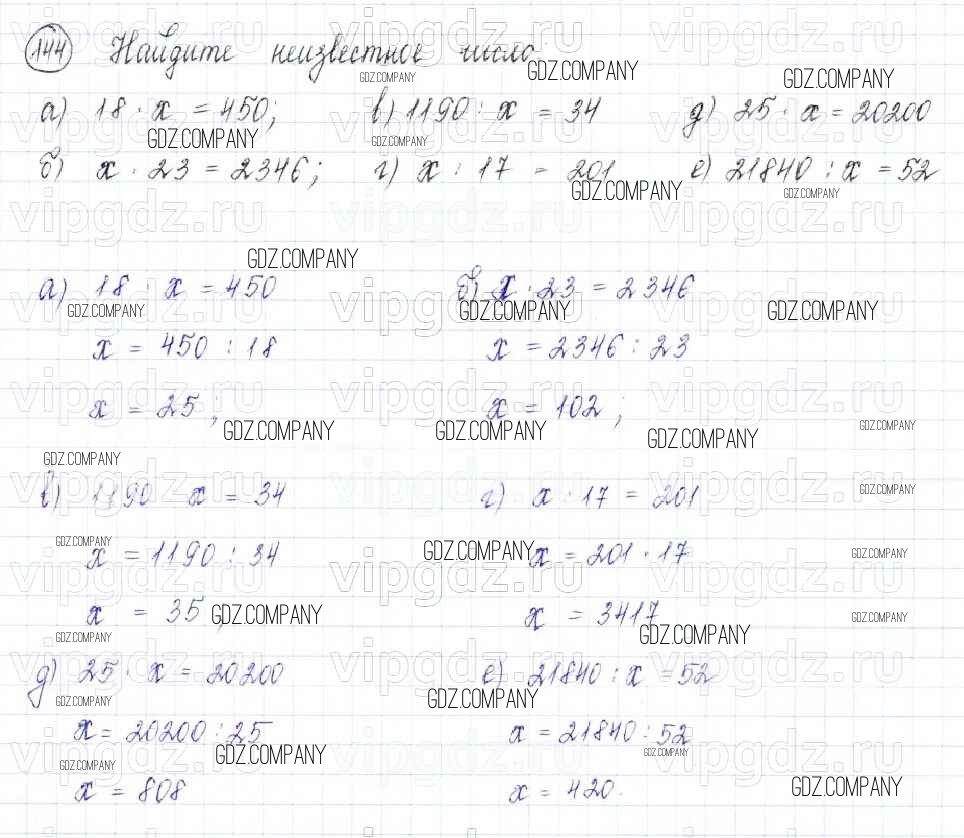 144 Найдите неизвестное число.
а) 18 · x = 450; в) 1190 : x = 34 д) 25 · x = 20200
б) x · 23 = 2346; г) x : 17 = 201 е) 21840 : x = 52
а) 18 · x = 450 б) x · 23 = 2346
x = 450 : 18 x = 2346 : 23
x = 25; x = 102;
в) 1190 x = 34 г) x · 17 = 201
x = 1190 : 34 x = 201 · 17
x = 35 x = 3417
д) 25 · x = 20200 е) 21840 : x = 52
x = 20200 : 25 x = 21840 : 52
x = 808 x = 420.
GDZ.COMPANY
vipgdz.ru